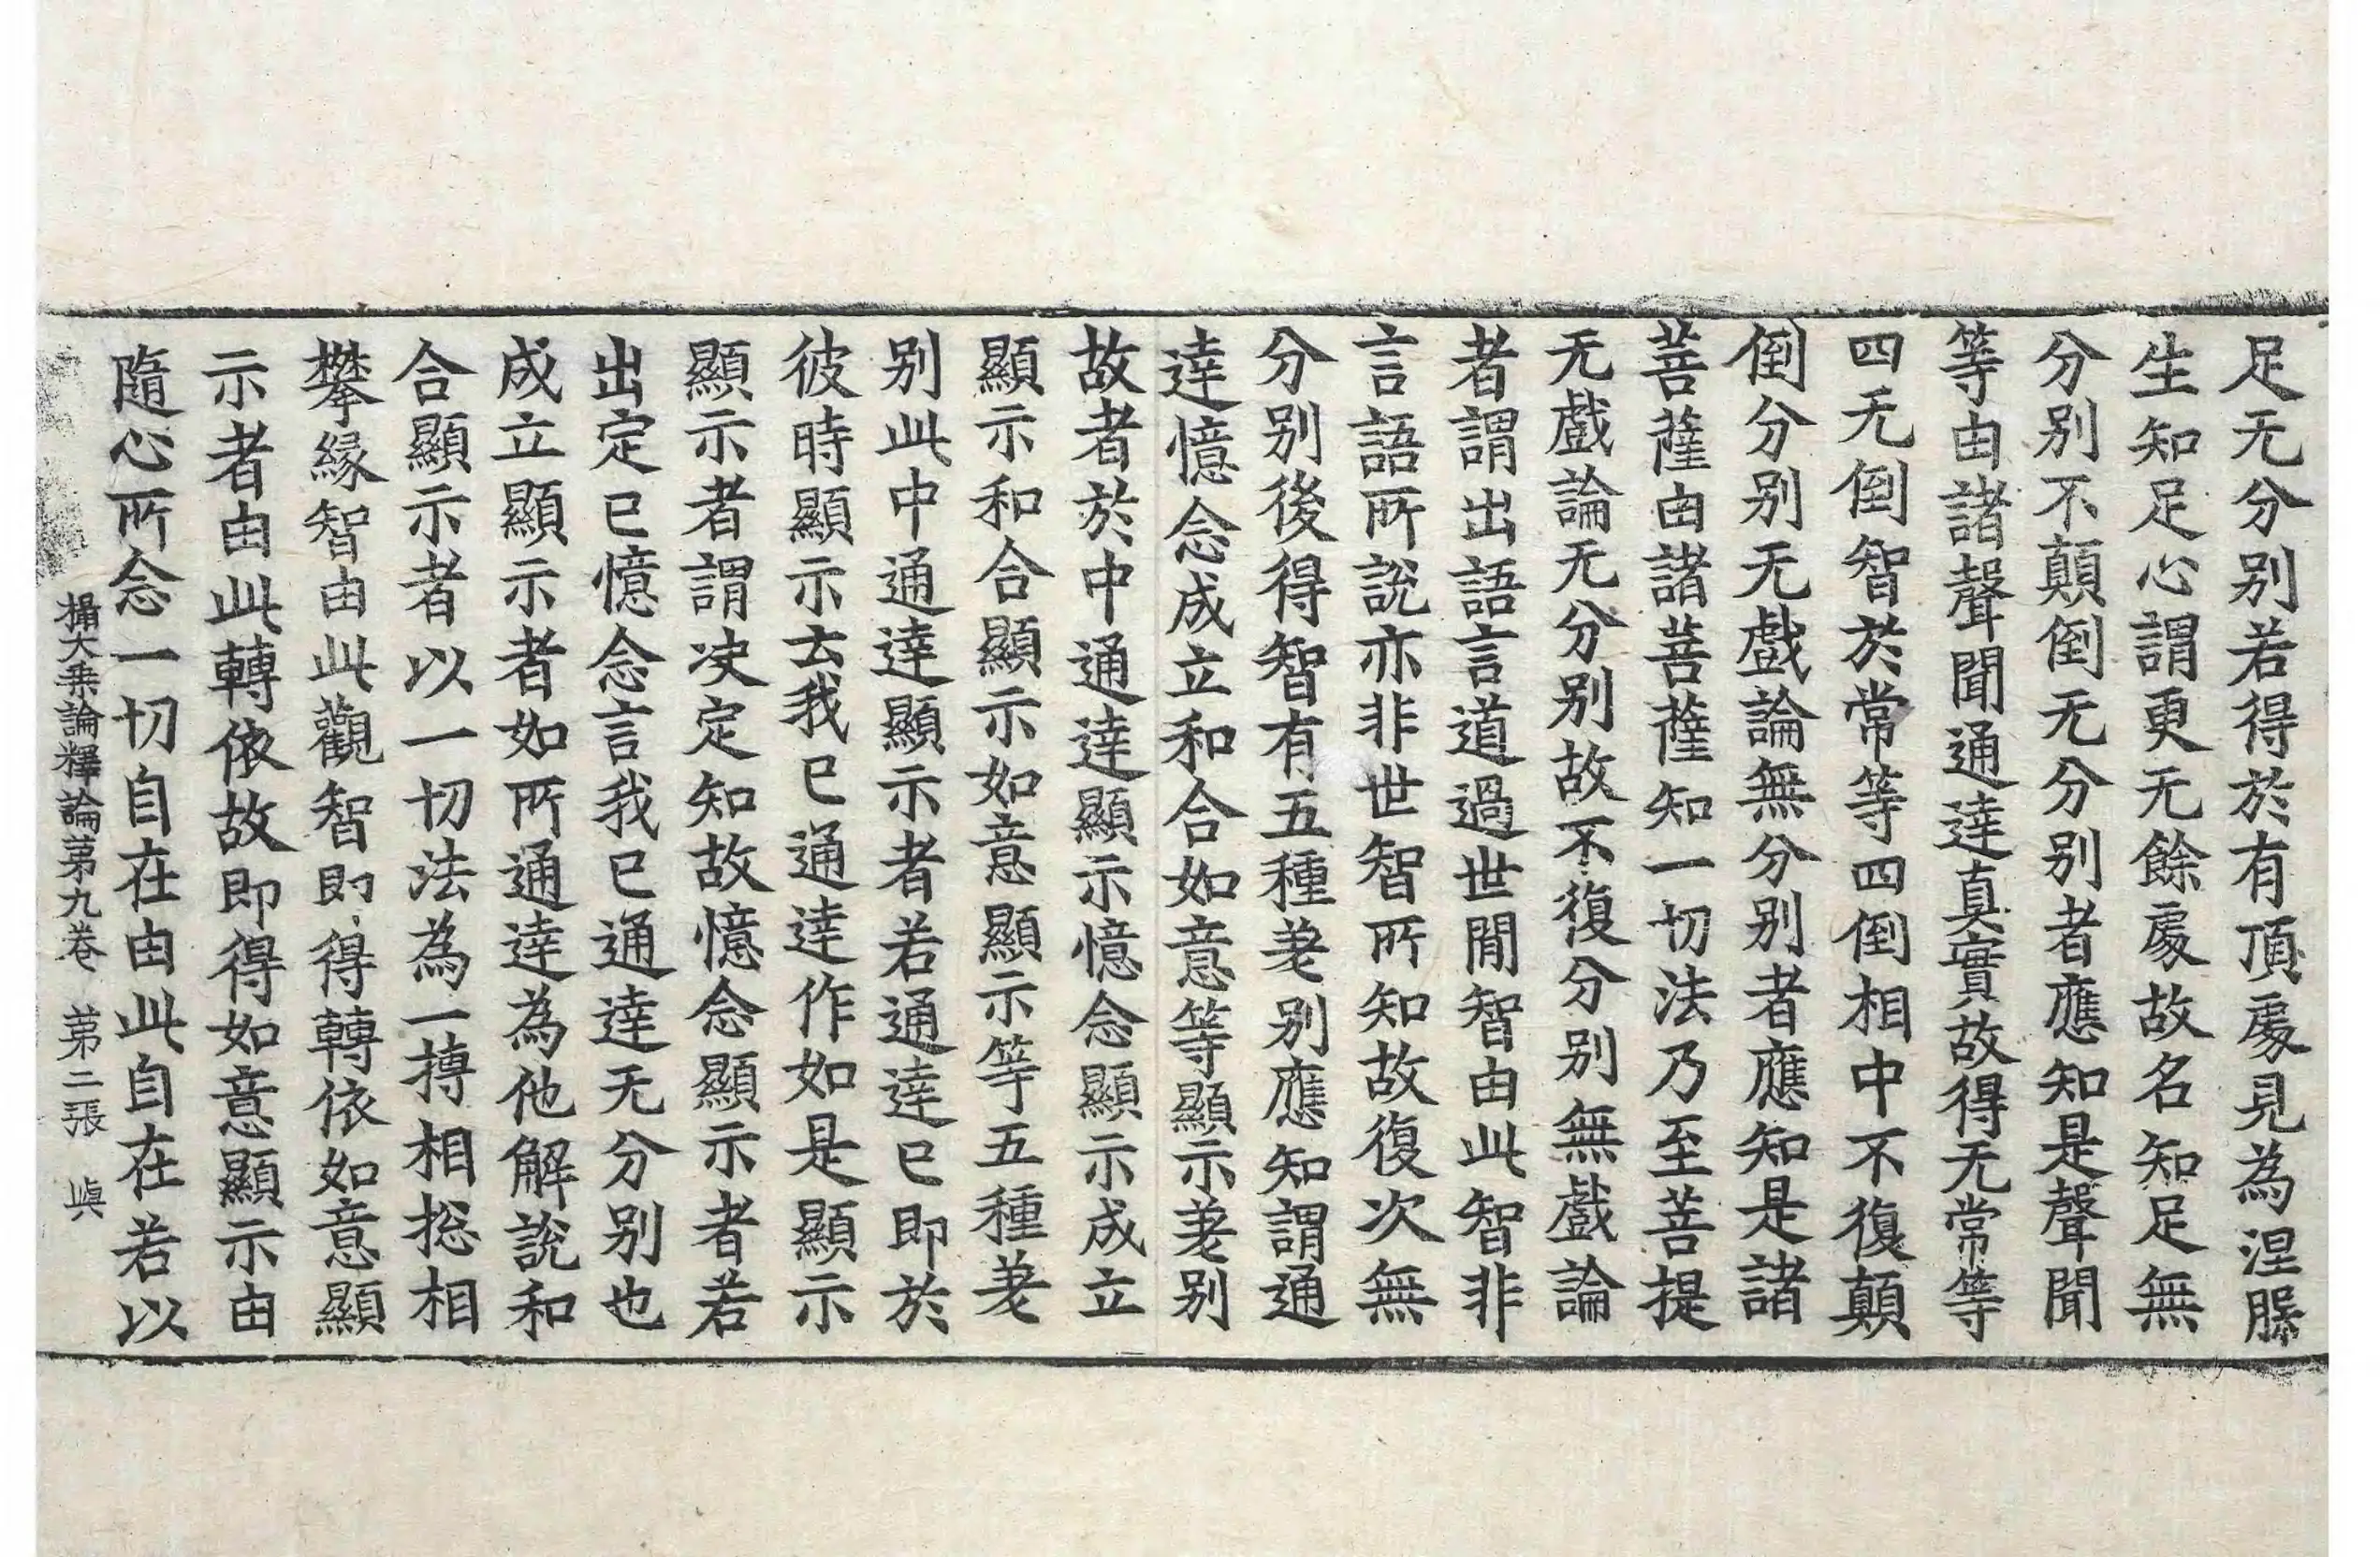 足无分别若得於有頂處見為涅槃
生知足心謂更无餘處故名知足無
分别不顛倒无分别者應知是聲聞
等由諸聲聞通達真實故得无常等
四无倒智於常等四倒相中不復顛
倒分别无戲論無分别者應知是諸
菩薩由諸菩薩知一切法乃至菩提
无戲論无分别故不復分别無戲論
者謂出語言道過世間智由此智非
言語所說亦非世智所知故復次無
分别後得智有五種差别應知謂通
達憶念成立和合如意等顯示差别
故者於中通達顯示憶念顯示成立
顯示和合顯示如意顯示等五種差
别此中通達顯示者若通達已即於
彼時顯示云我已通達作如是顯示
顯示者謂决定知故憶念顯示者若
出定已憶念言我已通達无分别也
成立顯示者如所通達為他解說和
合顯示者以一切法為一摶相揔相
攀緣智由此觀智即得轉依如意顯
示者由此轉依故即得如意顯示由
隨心所念一切自在由此自在若以
攝大乗論釋論第九卷 第二張 㠘